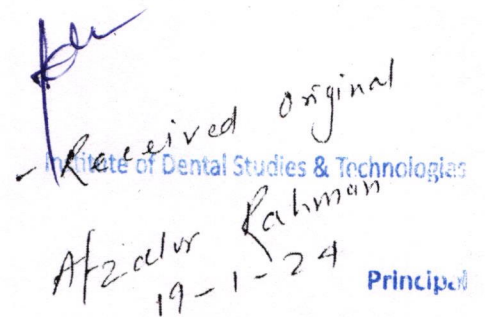 - Received original
Institute of Dental Studies & Technologies
Afzalur Rahman
19-1-24
Principal